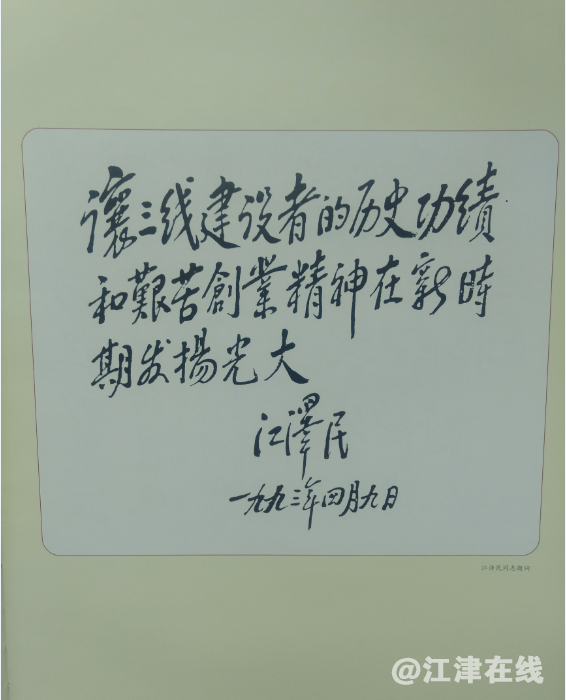 讓三线建设者的历史功績
和艱苦創業精神在新時
期发揚光大
江澤民
一九九三年四月九日
江泽民同志题词
@江津在线